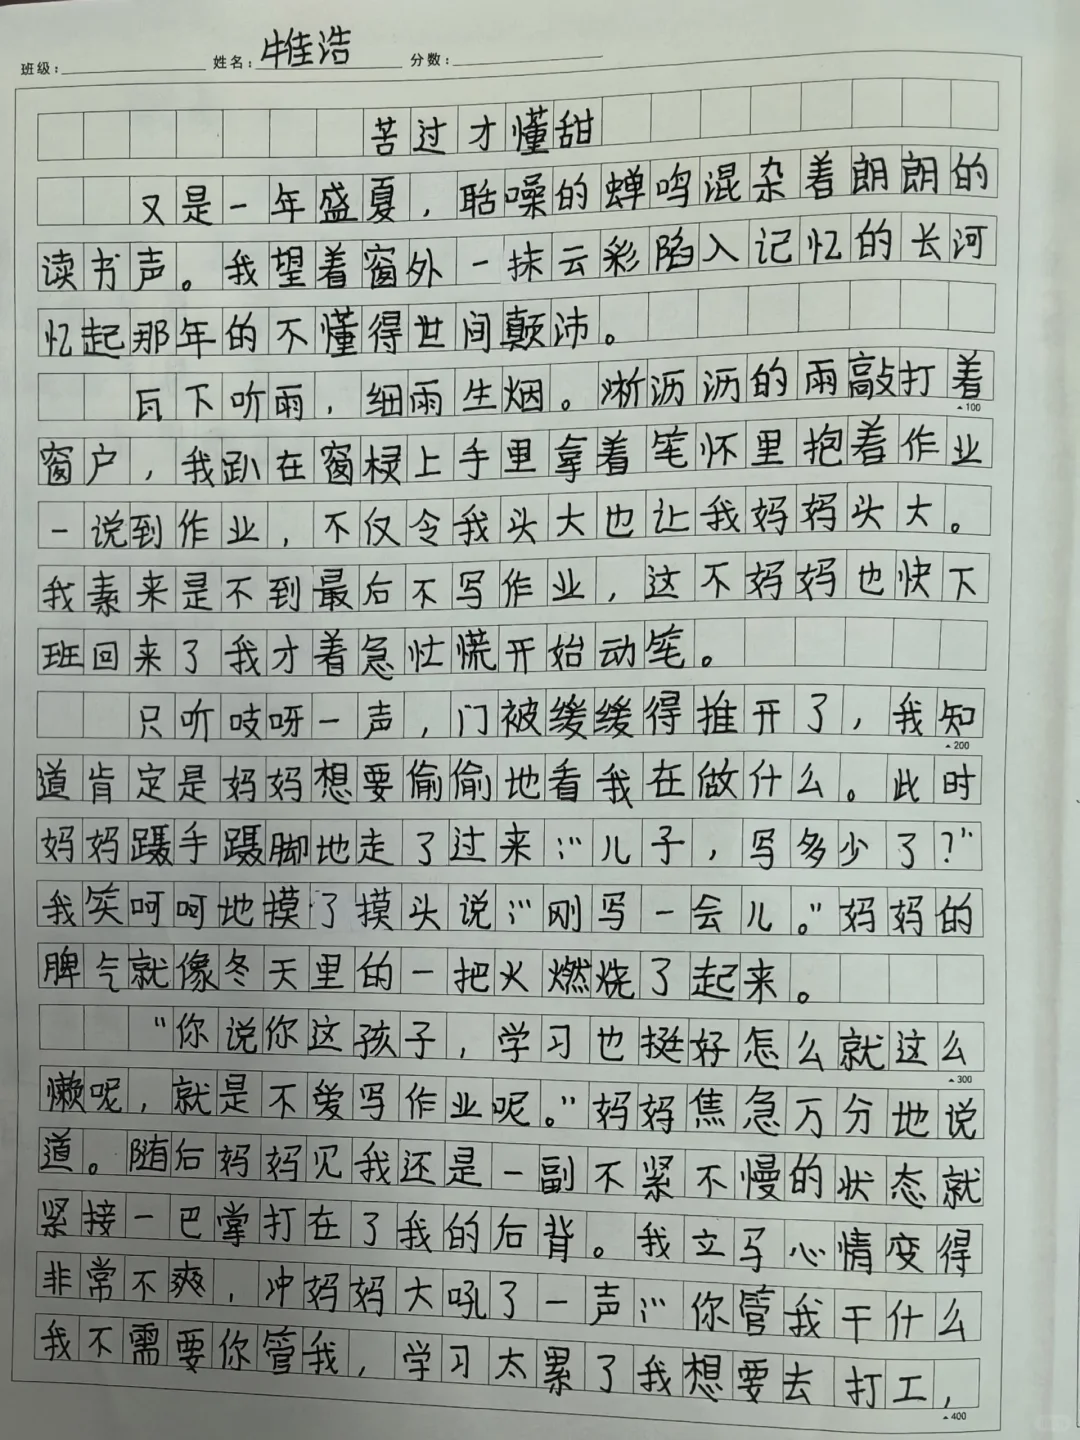 班级： 姓名：牛佳浩 分数：
苦过才懂甜
又是一年盛夏，聒噪的蝉鸣混杂着朗朗的
读书声。我望着窗外一抹云彩陷入记忆的长河
忆起那年的不懂得世间颠沛。
瓦下听雨，细雨生烟。淅沥沥的雨敲打着
100
窗户，我趴在窗棂上手里拿着笔怀里抱着作业
一说到作业，不仅令我头大也让我妈妈头大。
我素来是不到最后不写作业，这不妈妈也快下
班回来了我才着急忙慌开始动笔。
只听吱呀一声，门被缓缓得推开了，我知
200
道肯定是妈妈想要偷偷地看我在做什么。此时
妈妈蹑手蹑脚地走了过来：“儿子，写多少了？”
我笑呵呵地摸了摸头说：“刚写一会儿。”妈妈的
脾气就像冬天里的一把火燃烧了起来。
“你说你这孩子，学习也挺好怎么就这么
300
懒呢，就是不爱写作业呢。”妈妈焦急万分地说
道。随后妈妈见我还是一副不紧不慢的状态就
紧接一巴掌打在了我的后背。我立马心情变得
非常不爽，冲妈妈大吼了一声：“你管我干什么
我不需要你管我，学习太累了我想要去打工，
400